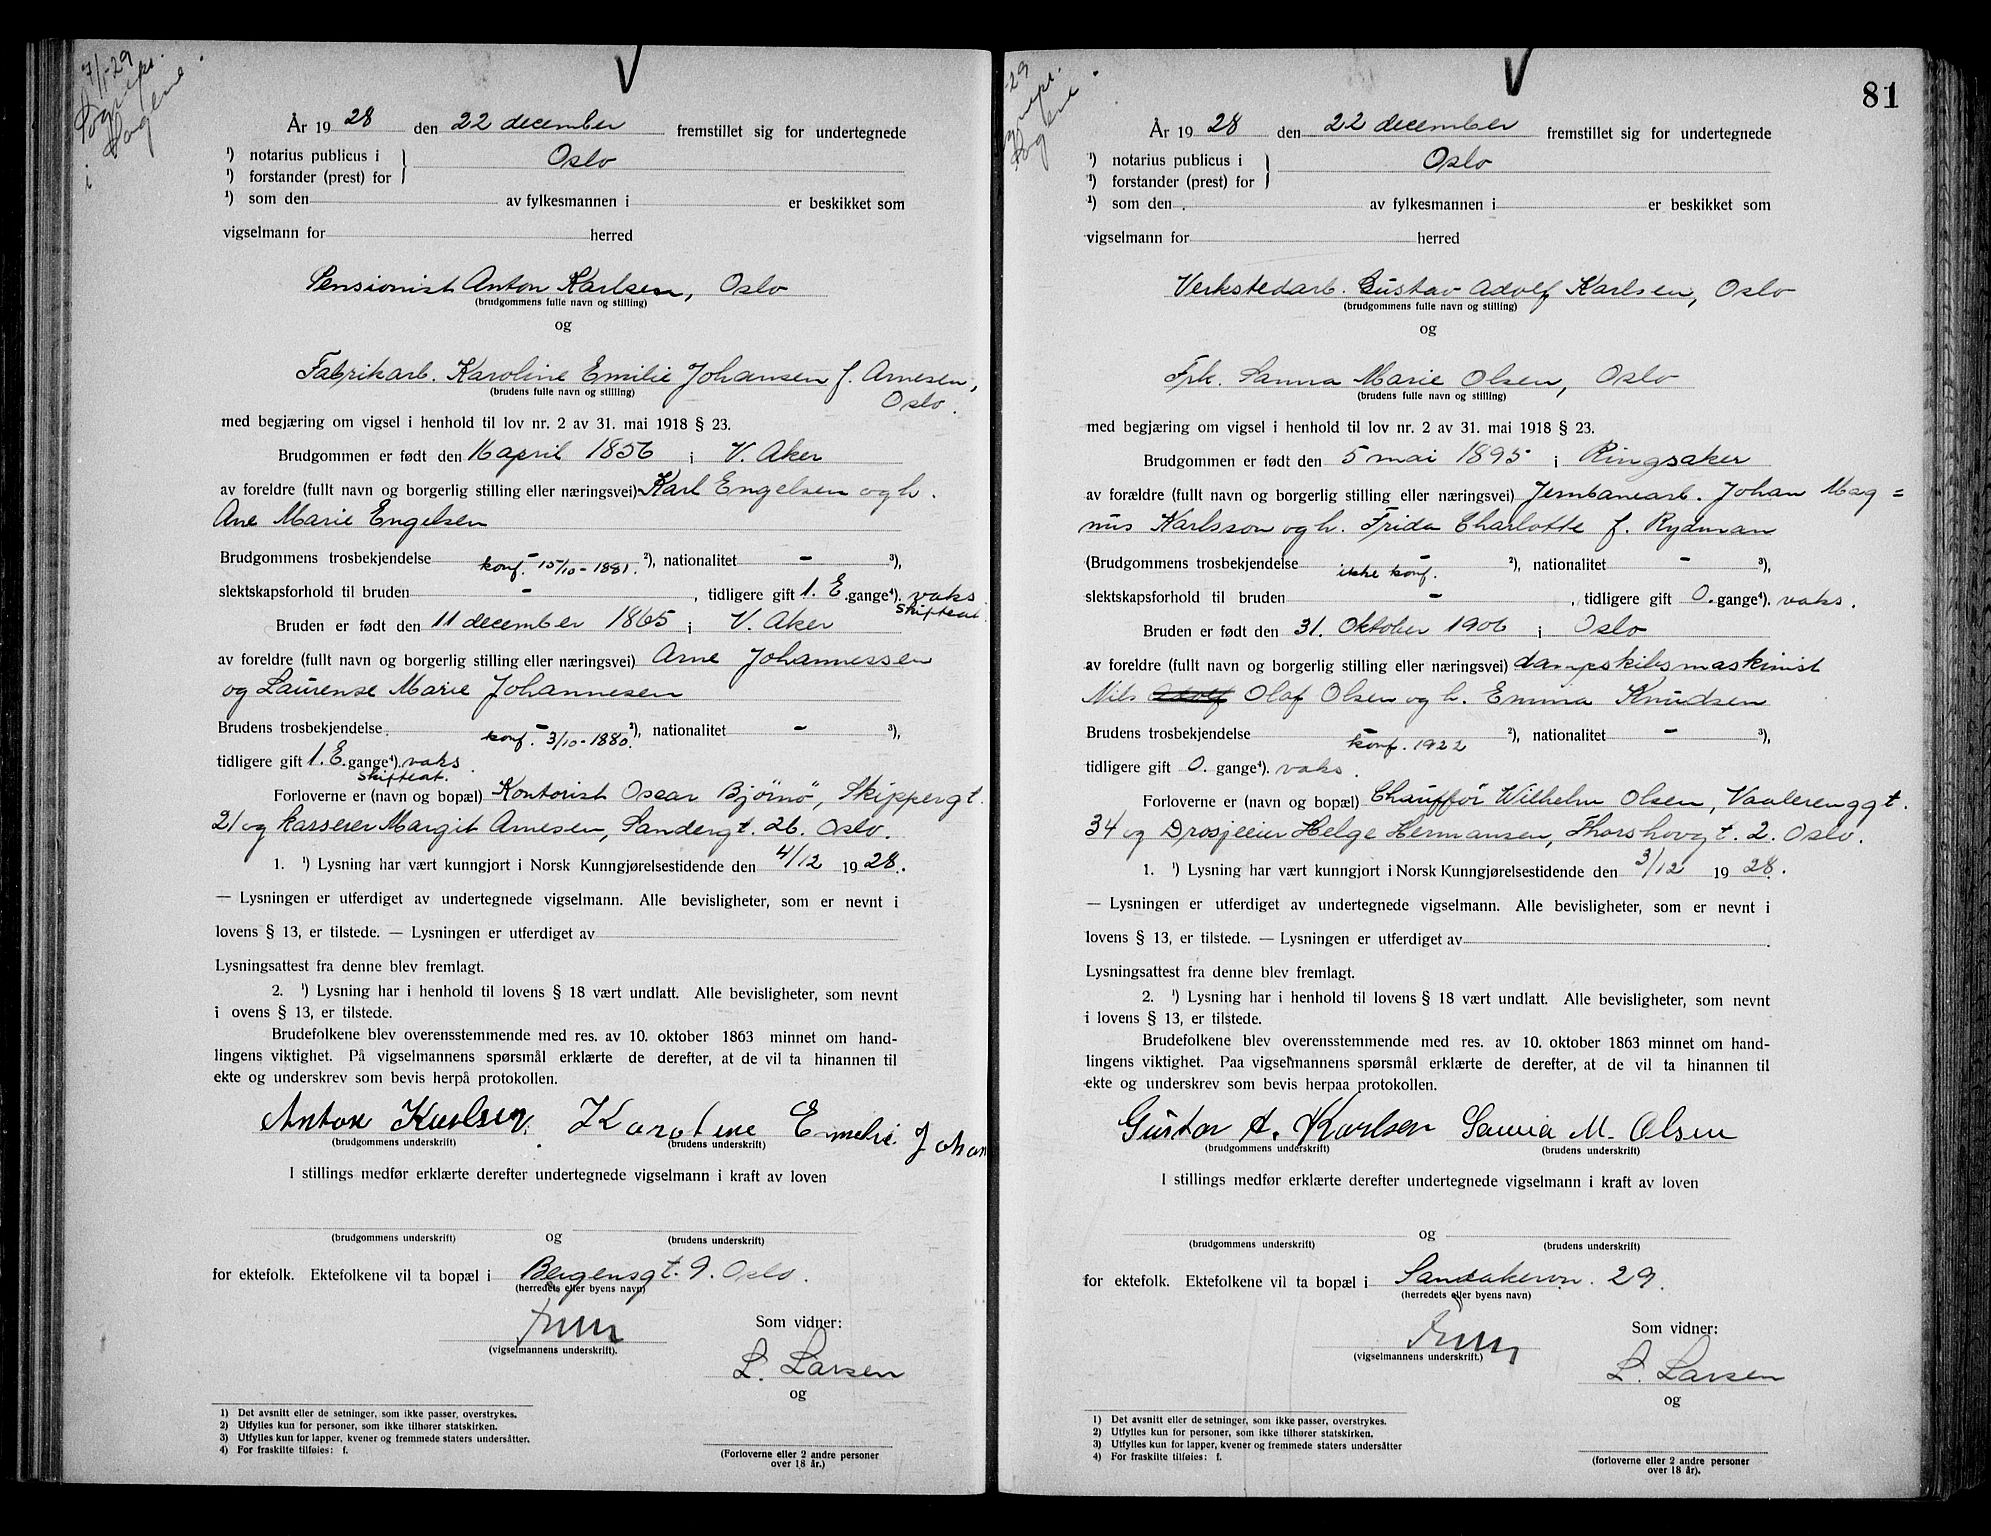 7/1-29
År 1928 den 22 december fremstillet sig for undertegnede
¹) notarius publicus i } Oslo
¹) forstander (prest) for
¹) som den av fylkesmannen i er beskikket som
vigselmann for herred
Pensionist Anton Karlsen, Oslo
(brudgommens fulle navn og stilling)
og
Fabrikarb. Karoline Emilie Johansen f. Arnesen,
(brudens fulle navn og stilling)
Oslo.
med begjæring om vigsel i henhold til lov nr. 2 av 31. mai 1918 § 23.
Brudgommen er født den 16 april 1856 i V. Aker
av foreldre (fullt navn og borgerlig stilling eller næringsvei) Karl Engelsen og h.
Ane Marie Engelsen
Brudgommens trosbekjendelse – konf. 15/10-1881. ²), nationalitet – ³),
slektskapsforhold til bruden –, tidligere gift 1. E. gange⁴). vaks
skifteat.
Bruden er født den 11 december 1865 i V. Aker
av foreldre (fullt navn og borgerlig stilling eller næringsvei) Arne Johannessen
og Laurense Marie Johannesen
Brudens trosbekjendelse – konf. 3/10-1880. ²), nationalitet – ³),
tidligere gift 1. E. gange⁴). vaks.
skifteat.
Forloverne er (navn og bopæl) Kontorist Oscar Bjørnø, Skippergt.
21 og kasserer Margit Arnesen, Sandergt. 26. Oslo.
1. ¹) Lysning har vært kunngjort i Norsk Kunngjørelsestidende den 4/12 1928.
— Lysningen er utferdiget av undertegnede vigselmann. Alle bevisligheter, som er nevnt i
lovens § 13, er tilstede. — Lysningen er utferdiget av
Lysningsattest fra denne blev fremlagt.
2. ¹) Lysning har i henhold til lovens § 18 vært undlatt. Alle bevisligheter, som nevnt
i ovens § 13, er tilstede.
Brudefolkene blev overensstemmende med res. av 10. oktober 1863 minnet om hand-
lingens viktighet. På vigselmannens spørsmål erklærte de derefter, at de vil ta hinannen til
ekte og underskrev som bevis herpå protokollen.
Anton Karlsen. Karoline Emelie Johan
(brudgommens underskrift) (brudens underskrift)
I stillings medfør erklærte derefter undertegnede vigselmann i kraft av loven
og
(brudgommens underskrift) (brudens underskrift)
for ektefolk. Ektefolkene vil ta bopæl i Bergensgt. 9. Oslo.
(herredets eller byens navn)
Som vidner:
(vigselmannens underskrift).
L. Larsen
og
1) Det avsnitt eller de setninger, som ikke passer, overstrykes.
2) Utfylles kun for personer, som ikke tilhører statskirken.
3) Utfylles kun for lapper, kvener og fremmede staters undersåtter.
4) For fraskilte tilføies: f.
(Forloverne eller 2 andre personer
over 18 år.)
-29
81
År 1928 den 22 december fremstillet sig for undertegnede
¹) notarius publicus i } Oslo
¹) forstander (prest) for
¹) som den av fylkesmannen i er beskikket som
vigselmann for herred
Verkstedarb. Gustav Adolf Karlsen, Oslo
(brudgommens fulle navn og stilling)
og
Frk. Sanna Marie Olsen, Oslo
(brudens fulle navn og stilling)
med begjæring om vigsel i henhold til lov nr. 2 av 31. mai 1918 § 23.
Brudgommen er født den 5 mai 1895 i Ringsaker
av forældre (fullt navn og borgerlig stilling eller næringsvei) Jernbanearb. Johan Mag=
nus Karlsson og h. Frida Charlotte f. Rydman
(Brudgommens trosbekjendelse – ikke konf. ²), nationalitet – ³),
slektskapsforhold til bruden –, tidligere gift 0. gange⁴). vaks.
Bruden er født den 31. Oktober 1906 i Oslo
av foreldre (fullt navn og borgerlig stilling eller næringsvei) dampskibsmaskinist
Nils Adolf Olaf Olsen og h. Emma Knudsen
Brudens trosbekjendelse – konf. 1922 ²), nationalitet – ³),
tidligere gift 0. gange⁴). vaks.
Forloverne er (navn og bopæl) Chauffør Wilhelm Olsen, Vaalerenggt.
34 og Drosjeeier Helge Hermansen, Thorshovgt. 2. Oslo.
1. ¹) Lysning har vært kunngjort i Norsk Kunngjørelsestidende den 3/12 1928.
— Lysningen er utferdiget av undertegnede vigselmann. Alle bevisligheter, som er nevnt i
lovens § 13, er tilstede. — Lysningen er utferdiget av
Lysningsattest fra denne blev fremlagt.
2. ¹) Lysning har i henhold til lovens § 18 vært undlatt. Alle bevisligheter, som nevnt
i lovens § 13, er tilstede.
Brudefolkene blev overensstemmende med res. av 10. oktober 1863 minnet om hand-
lingens viktighet. Paa vigselmannens spørsmål erklærte de derefter, at de vil ta hinannen til
ekte og underskrev som bevis herpaa protokollen.
Gustav A. Karlsen Sanna M. Olsen
(brudgommens underskrift) (brudens underskrift)
I stillings medfør erklærte derefter undertegnede vigselmann i kraft av loven
og
(brudgommens underskrift) (brudens underskrift)
for ektefolk. Ektefolkene vil ta bopæl i Sandakervn. 29.
(herredets eller byens navn)
Som vidner:
(vigselmannens underskrift.)
L. Larsen
og
1) Det avsnitt eller de setninger, som ikke passer, overstrykes.
2) Utfylles kun for personer, som ikke tilhører statskirken.
3) Utfylles kun for lapper, kvener og fremmede staters undersåtter
4) For fraskilte tilføies: f.
(forloverne eller 2 andre personer
over 18 år).